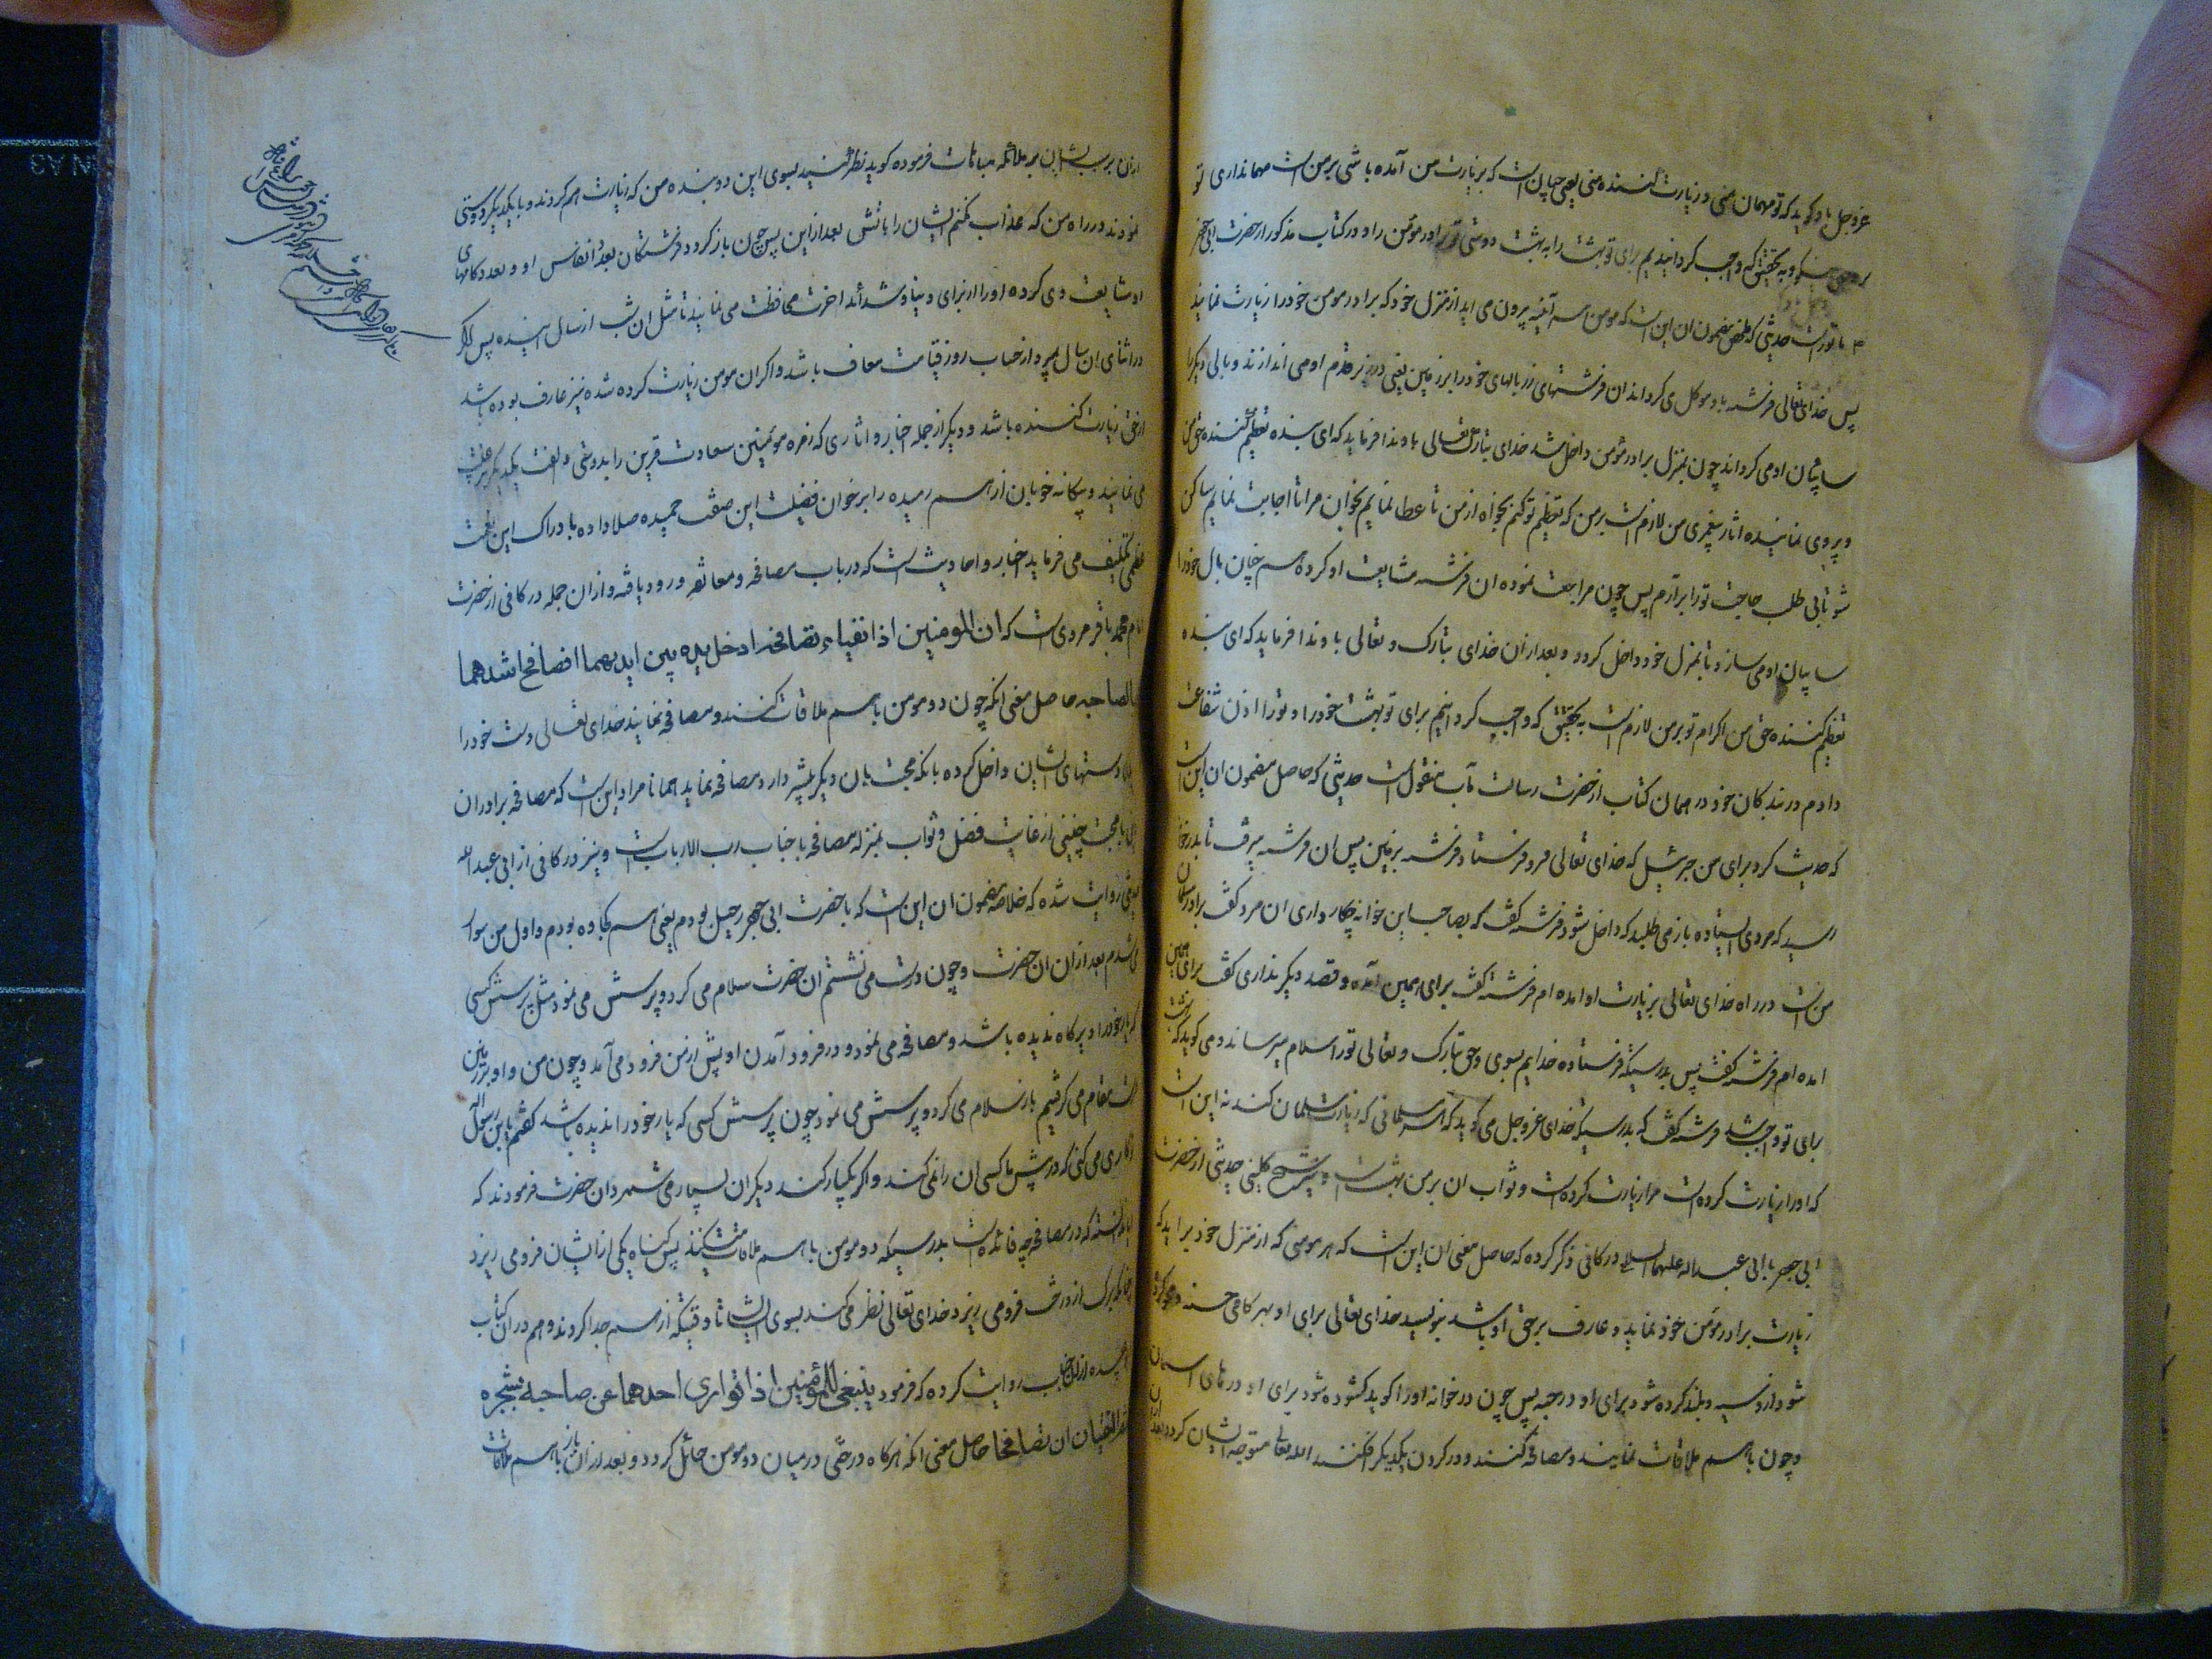 عزوجل باو کوید که تو مهمان منی و زیارت کننده منی یعنی چنانست که بزیارت من آمده باشی بر منست مهمانداری تو
و به تحقیق که واجب کردانیدیم برای تو بهشت را به بهشت دوستی تو برادر مؤمن را و در کتاب مذکور از حضرت ابی جعفر
ماثورست حدیثی که ملخص مضمون ان اینست که مومن هر آینه بیرون می اید از منزل خود که برادر مومن خود را زیارت نماید
پس خدای تعالی فرشته باو موکل می کرداند ان فرشتهای زر بالهای خود را بر زمین یعنی در زیر قدم او می اندازند و بالی دیکر را
سایبان او می کرداند چون بمنزل برادر مؤمن داخل شد خدای تبارک تعالی باو ندا فرماید که ای بنده تعظیم کننده حق من
و پیروی نماینده اثار پیغمبری من لازمست بر من که تعظیم تو کنم بخواه از من تا عطا نمایم بخوان مرا تا اجابت نمایم ساکن
شو تا بی طلب حاجت تو را برارم پس چون مراجعت نموده ان فرشته مشایعت او کرده همچنان بال خود را
سایبان او می سازد تا بمنزل خود داخل کردد و بعد از ان خدای تبارک و تعالی باو ندا فرماید که ای بنده
تعظیم کننده حق من اکرام تو بر من لازمست به تحقیق که واجب کردانیم برای تو بهشت خود را و تو را اذن شفاعت
دادم در بندکان خود در همان کتاب از حضرت رسالت مآب منقولست حدیثی که حاصل مضمون ان اینست
که حدیث کرد برای من جبرئیل که خدای تعالی فرو فرستاد فرشته بر زمین پس ان فرشته میرفت تا بدرخانه
رسید که مردی ایستاده بار می طلبد که داخل شود فرشته کفت که بصاحب این خوانه چکار داری ان مرد کفت برادر مسلمان
منست در راه خدای تعالی بزیارت او امده ام فرشته کفت برای همین آمده و قصد دیکر نداری کفت برای همین
امده ام فرشته کفت پس بدرستیکه فرستاده خدایم بسوی تو و حق تبارک و تعالی تو را سلام میرساند و می کوید که بهشت
برای تو واجب شد فرشته کفت که بدرستیکه خدای عزوجل می کوید که هر مسلمانی که زیارت مسلمان کند نه اینست
که او را زیارت کرده است مرا زیارت کرده است و ثواب ان بر من بهشتست و نیز شیخ کلینی حدیثی از حضرت
ابی جعفر یا ابی عبدالله علیهما السلام در کافی ذکر کرده که حاصل معنی ان اینست که هر مومنی که از منزل خود براید که
زیارت برادر مؤمن خود نماید و عارف بر حق او باشد بنویسد خدای تعالی برای او بهر کامی حسنه و محو کرده
شود از و سیه و بلند کرده شود برای او درجه پس چون در خوانه او را کوید کشوده شود برای او درهای اسمان
و چون باهم ملاقات نمایند و مصافحه کنند و در کردن یکدیکر افکنند الله تعالی متوجه ایشان کردد بعد
از ان بر ایشان بر ملائکه مباهات فرموده کوید نظر کنید بسوی این دو بنده من که زیارت هم کردند و با یکدیکر دوستی
نمودند در راه من که عذاب نکنم ایشان را باتش بعد ازاین پس چون باز کردد فرشتکان بعدد انفاس او و بعدد کامهای
او مشایعت وی کرده او را از بلای دنیا و شداید اخرت محافظت می نمایند تا مثل ان شب از سال اینده پس اکر
در اثنای ان سال میرد از حساب روز قیامت معاف باشد و اکر ان مومن زیارت کرده شده نیز عارف بوده باشد
از حق زیارت کننده باشد و دیکر از جمله اخبار و اثاری که زمره مؤمنین سعادت قرین را بدوستی و الفت یکدیکر ترغیب
می نمایند و بیکانه خویان از هم رمیده را بر خوان فضیلت این صفت حمیده صلا داده بادراک این نعمت
عظمی تکلیف می فرماید اخبار و احادیثست که در باب مصافحه و معانقه ورود یافته و از ان جمله در کافی از حضرت
امام محمد باقر مرویست که ان المومنین اذا التقیا و تصافحا ادخل الله یده بین ایدیهما فصافح اشدهما
حبا لصاحبه حاصل معنی انکه چون دو مومن باهم ملاقات کنند و مصافحه نمایند خدای تعالی دست خود را
در دستهای ایشان داخل کرده بانکه محبت بان دیکر بیشتر دارد مصافحه نماید همانا مراد اینست که مصافحه برادران
با محبت چنینی از غایت فضل و ثواب بمنزله مصافحه با جناب رب الاربابست و نیز در کافی از ابی عبیده
حدیثی روایت شده که خلاصه مضمون ان اینست که با حضرت ابی جعفر زمیل بودم یعنی هم کجاوه بودم و اول من سوار
می شدم بعد از ان ان حضرت و چون درست می نشستم ان حضرت سلام می کرد و پرسش می نمود مثل پرسش کسی
که یار خود را دیرکاه ندیده باشد و مصافحه می نمود و در فرود آمدن او پیش از من فرود می آمد و چون من و او بر زمین
راست مقام می کرفتیم باز سلام می کرد و پرسش می نمود چون پرسش کسی که یار خود را ندیده باشد کفتم یا بن رسول الله
کاری می کنی که در پیش ما کسی ان را نمی کند و اکر یکبار کند دیکر ان بسیار می شمرد ان حضرت فرمودند که
ایا ندانسته که در مصافحه چه فائده است بدرستیکه دو مومن باهم ملاقات میکنند پس کناه یکی از ایشان فرو می ریزد
چنانکه برک از درخت فرو می ریزد خدای تعالی نظر می کند بسوی ایشان تا وقتیکه از هم جدا کردند و هم در ان کتاب
از ان جناب روایت کرده که فرمود ینبغی للمؤمنین اذا تواری احدهما عن صاحبه بشجره
ثم التقیا ان تصافحا حاصل معنی انکه هرکاه درختی درمیان دو مومن حائل کردد و بعد از ان باز باهم ملاقات